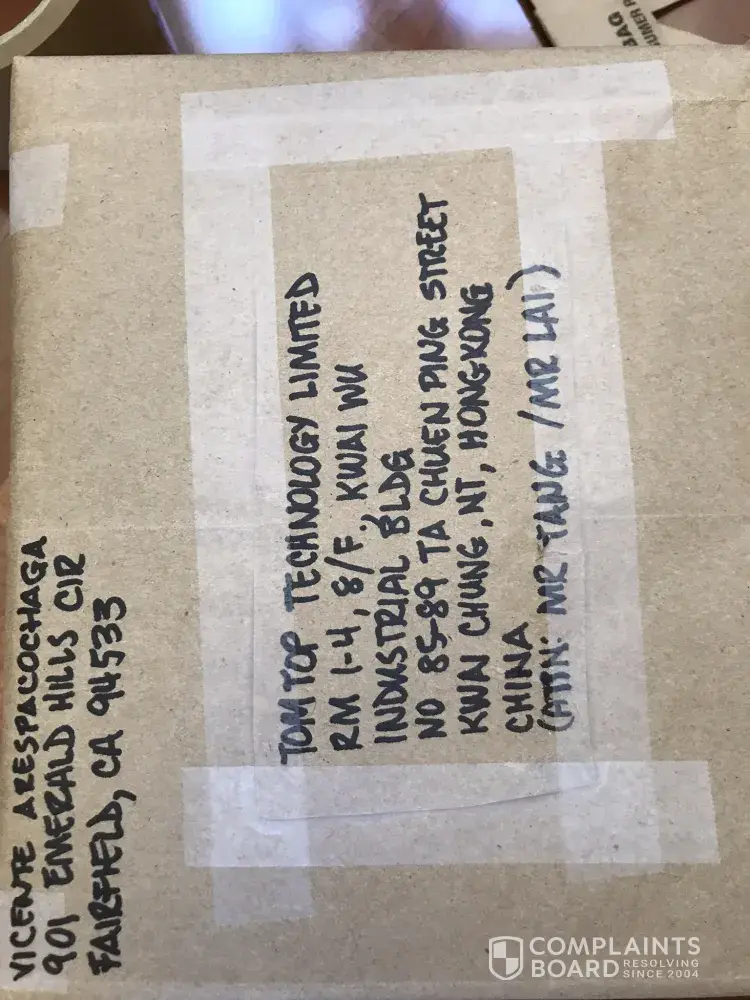 VICENTE ARESPACOCHAGA
901 EMERALD HILLS CIR
FAIRFIELD, CA 94533
TOMTOP TECHNOLOGY LIMITED
RM 1-4, 8/F, KWAI WU
INDUSTRIAL BLDG
NO 85-89 TA CHUEN PING STREET
KWAI CHUNG, NT, HONGKONG
CHINA
(ATTN: MR TANG / MR LAI)
BAG
COMPLAINTS
BOARD RESOLVING
SINCE 2004